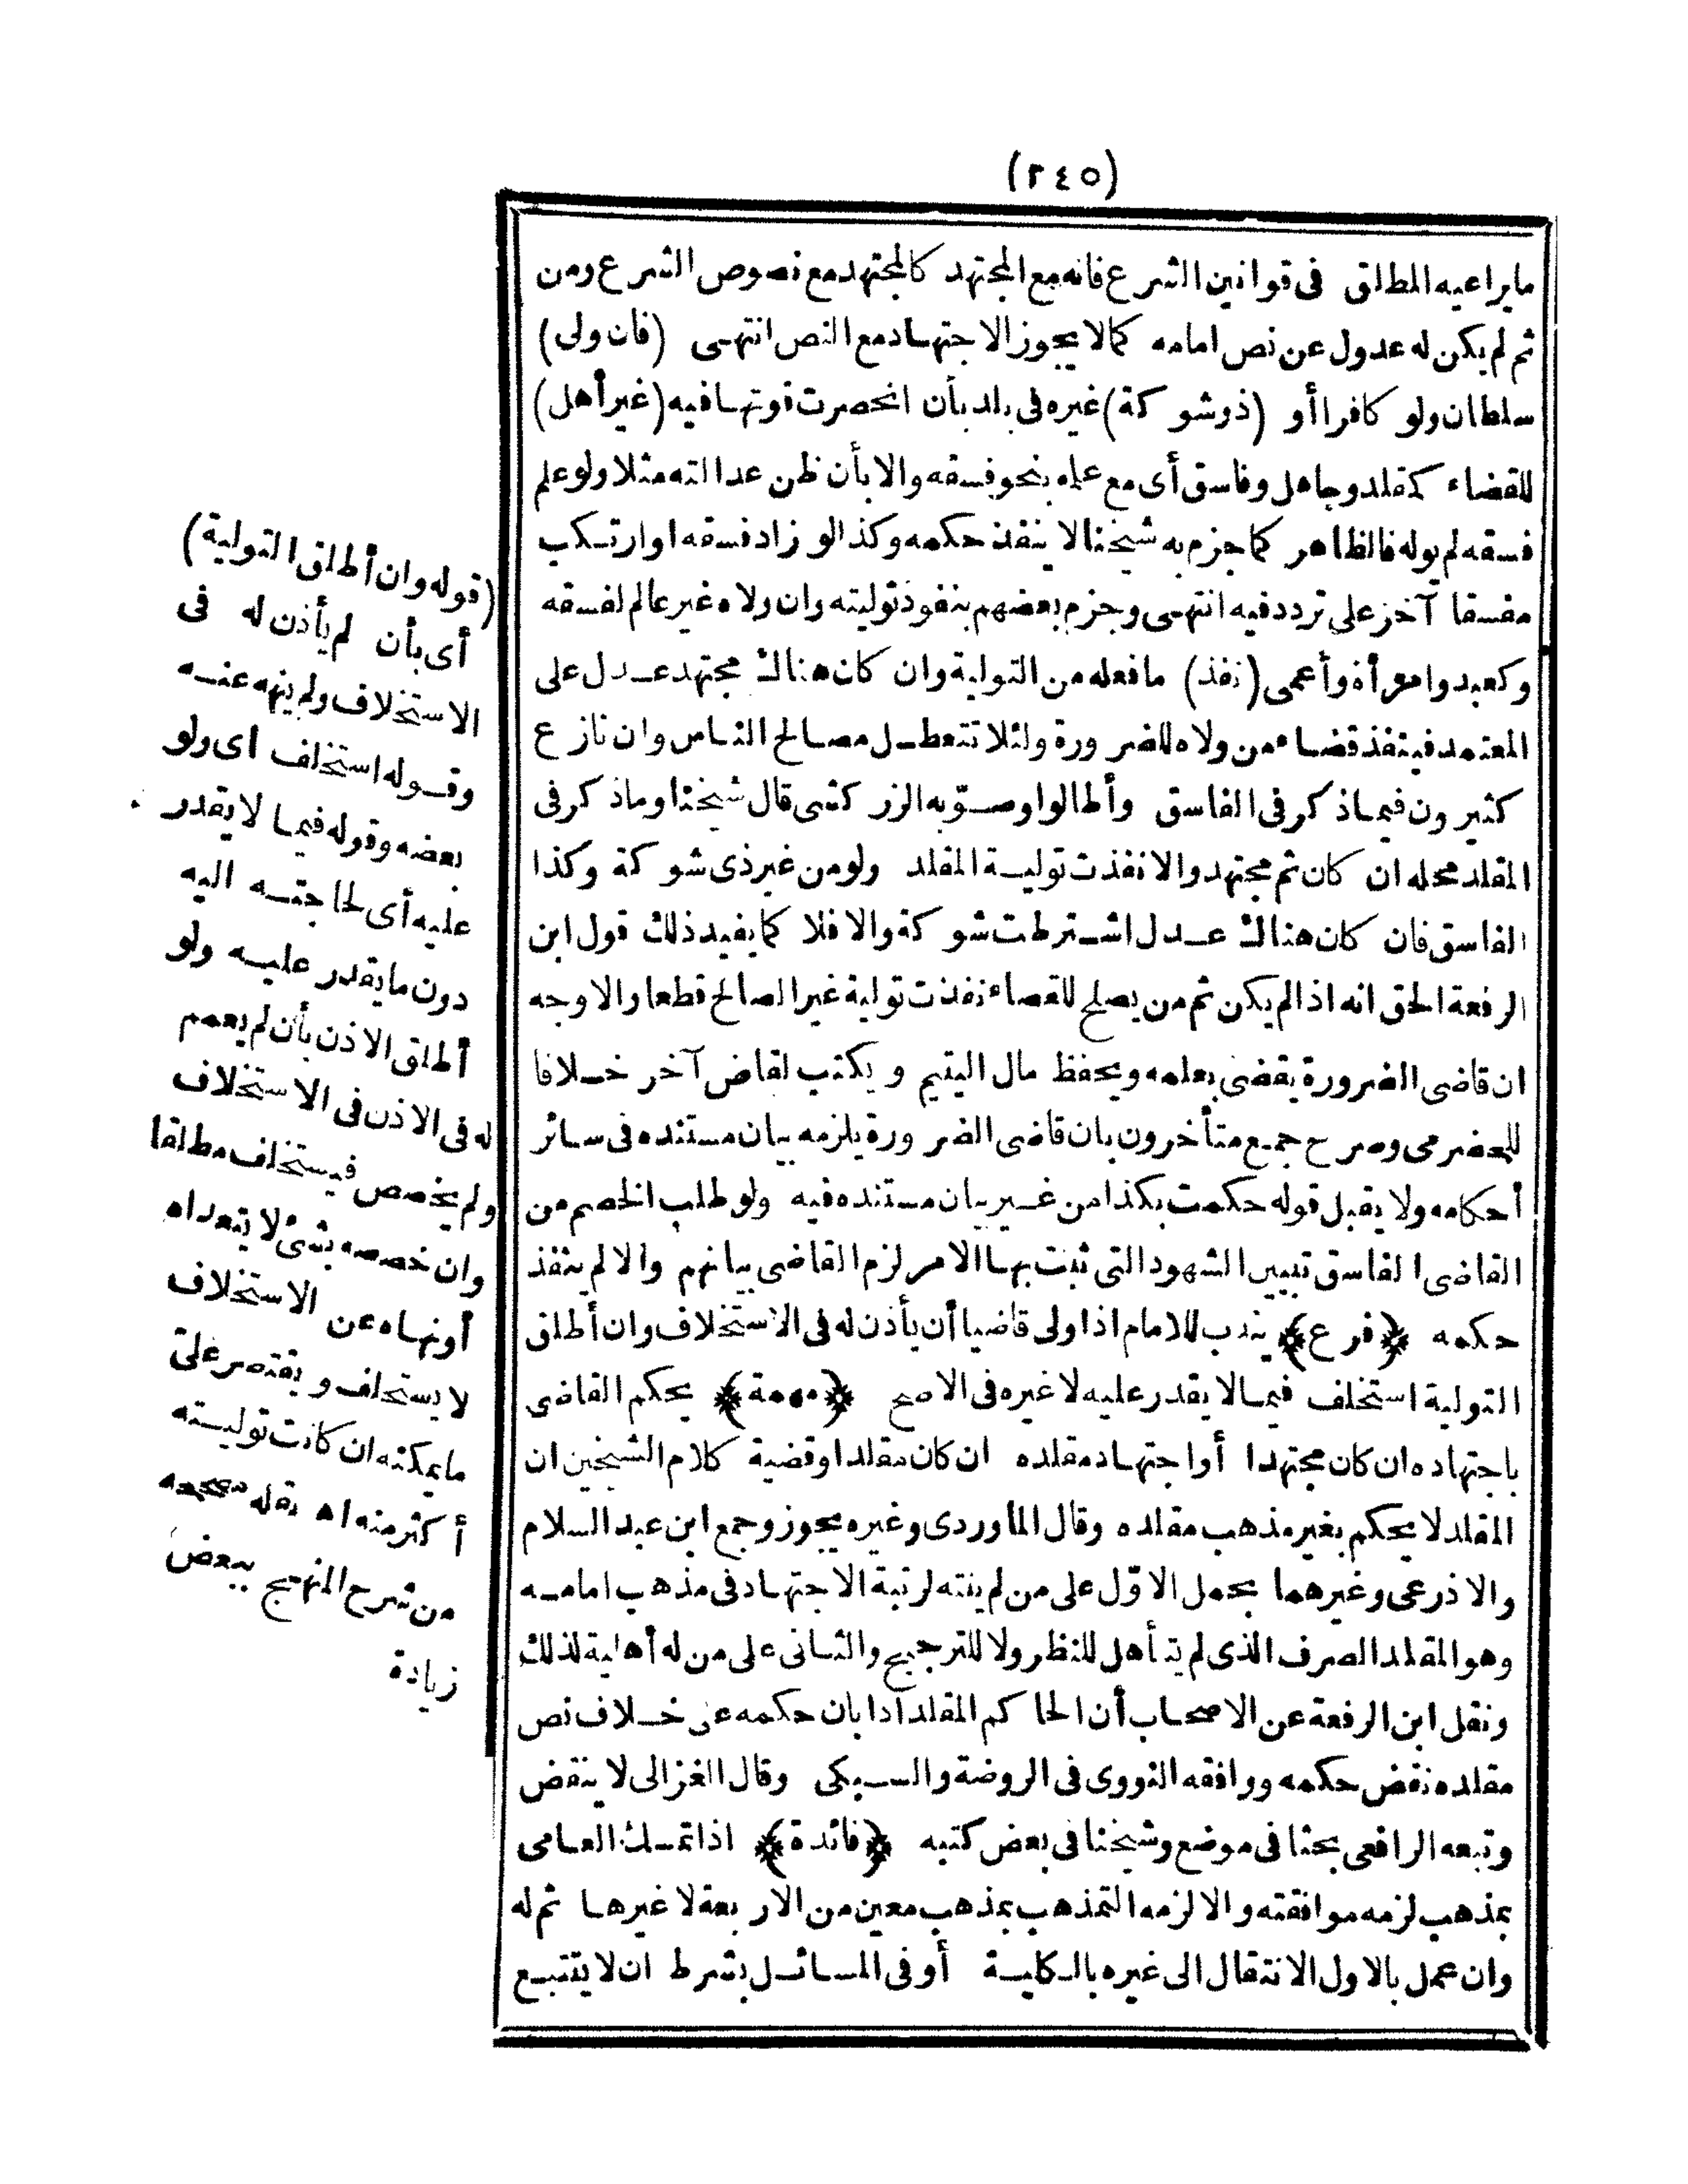 (٢٤٥)
ما يراعيه المطلق فى قوانين الشرع فانه مع المجتهد كالمجتهد مع نصوص الشرع ومن
ثم لم يكن له عدول عن نص امامه كما لا يجوز الاجتهاد مع النص انتهى (فان ولى)
سلطان ولو كافرا أو (ذو شوكة) غيره فى بلد بأن انحصرت قوتها فيه (غير أهل)
للقضاء كمقلد وجاهل وفاسق أى مع علمه بنحو فسقه والا بأن ظن عدالته مثلا ولو علم
فسقه لم يوله فالظاهر كما جزم به شيخنا لا ينفذ حكمه وكذا لو زاد فسقه او ارتكب
مفسقا آخر على تردد فيه انتهى وجزم بعضهم بنفوذ توليته وان ولاه غير عالم لفسقه
وكعبد وامرأة وأعمى (نفذ) ما فعله من التولية وان كان هناك مجتهد عدل على
المعتمد فينفذ قضاء من ولاه للضرورة ولئلا تتعطل مصالح الناس وان نازع
كثيرون فيما ذكر فى الفاسق وأطالوا وصوّبه الزركشى قال شيخنا وما ذكر فى
المقلد محله ان كان ثم مجتهد والا نفذت تولية المقلد ولو من غير ذى شوكة وكذا
الفاسق فان كان هناك عدل اشترطت شوكة والا فلا كما يفيد ذلك قول ابن
الرفعة الحق انه اذا لم يكن ثم من يصلح للقضاء نفذت تولية غير الصالح قطعا والاوجه
ان قاضى الضرورة يقضى بعلمه ويحفظ مال اليتيم ويكتب لقاض آخر خلافا
للحضرمى وصرح جمع متأخرون بان قاضى الضرورة يلزمه بيان مستنده فى سائر
أحكامه ولا يقبل قوله حكمت بكذا من غير بيان مستنده فيه ولو طلب الخصم من
القاضى الفاسق تبيين الشهود التى ثبت بها الامر لزم القاضى بيانهم والا لم ينفذ
حكمه ﴿فرع﴾ يندب للامام اذا ولى قاضيا أن يأذن له فى الاستخلاف وان أطلق
التولية استخلف فيما لا يقدر عليه لا غيره فى الاصح ﴿مهمة﴾ يحكم القاضى
باجتهاده ان كان مجتهدا أو اجتهاد مقلده ان كان مقلدا وقضية كلام الشيخين ان
المقلد لا يحكم بغير مذهب مقلده وقال الماوردى وغيره يجوز وجمع ابن عبد السلام
والاذرعى وغيرهما بحمل الاوّل على من لم ينته لرتبة الاجتهاد فى مذهب امامه
وهو المقلد الصرف الذى لم يتأهل للنظر ولا للترجيح والثانى على من له أهلية لذلك
ونقل ابن الرفعة عن الاصحاب أن الحاكم المقلد اذا بان حكمه على خلاف نص
مقلده نقض حكمه ووافقه النووى فى الروضة والسبكى وقال الغزالى لا ينقض
وتبعه الرافعى بحثا فى موضع وشيخنا فى بعض كتبه ﴿فائدة﴾ اذا تمسك العامى
بمذهب لزمه موافقته والا لزمه التمذهب بمذهب معين من الاربعة لا غيرها ثم له
وان عمل بالاول الانتقال الى غيره بالكلية أو فى المسائل بشرط ان لا يتتبع
(قوله وان أطلق التولية)
أى بأن لم يأذن له فى
الاستخلاف ولم ينهه عنه
وقوله استخلف اى ولو
بعضه وقوله فيما لا يقدر
عليه أى لحاجته اليه
دون ما يقدر عليه ولو
أطلق الاذن بأن لم يعمم
له فى الاذن فى الاستخلاف
ولم يخصص فيستخلف مطلقا
وان خصصه بشئ لا يتعداه
أو نهاه عن الاستخلاف
لا يستخلف ويقتصر على
ما يمكنه ان كانت توليته
أكثر منه اه نقله مصححه
من شرح المنهج ببعض
زيادة